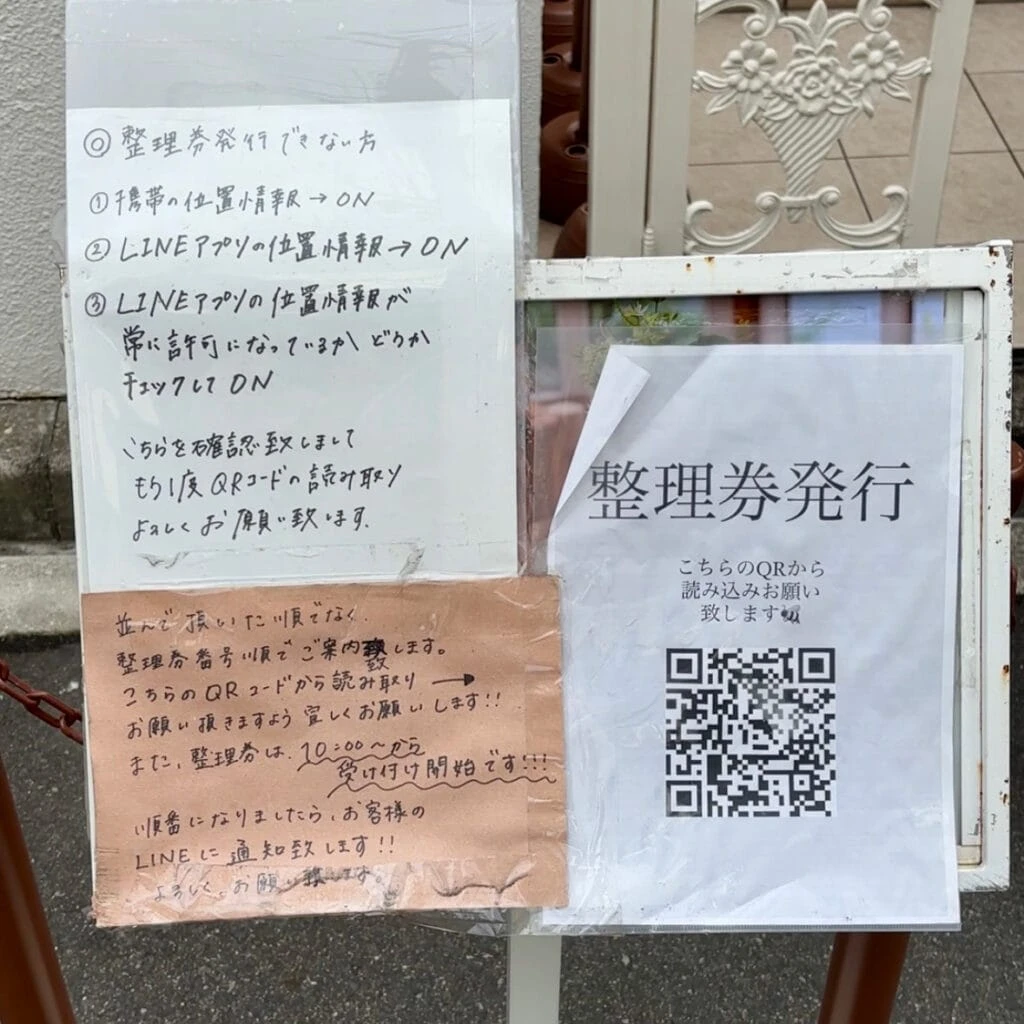 ◎整理券発行できない方
①携帯の位置情報→ON
②LINEアプリの位置情報→ON
③LINEアプリの位置情報が
常に許可になっているかどうか
チェックしてON
こちらを確認致しまして
もう1度QRコードの読み取り
よろしくお願い致します.
並んで頂いた順でなく.
整理券番号順でご案内致します。
こちらのQRコードから読み取り→
お願い頂きますよう宜しくお願いします!!
また、整理券は、10:00〜から
受け付け開始です!!!
順番になりましたら、お客様の
LINEに通知致します!!
よろしく、お願い致します。
整理券発行
こちらのQRから
読み込みお願い
致します